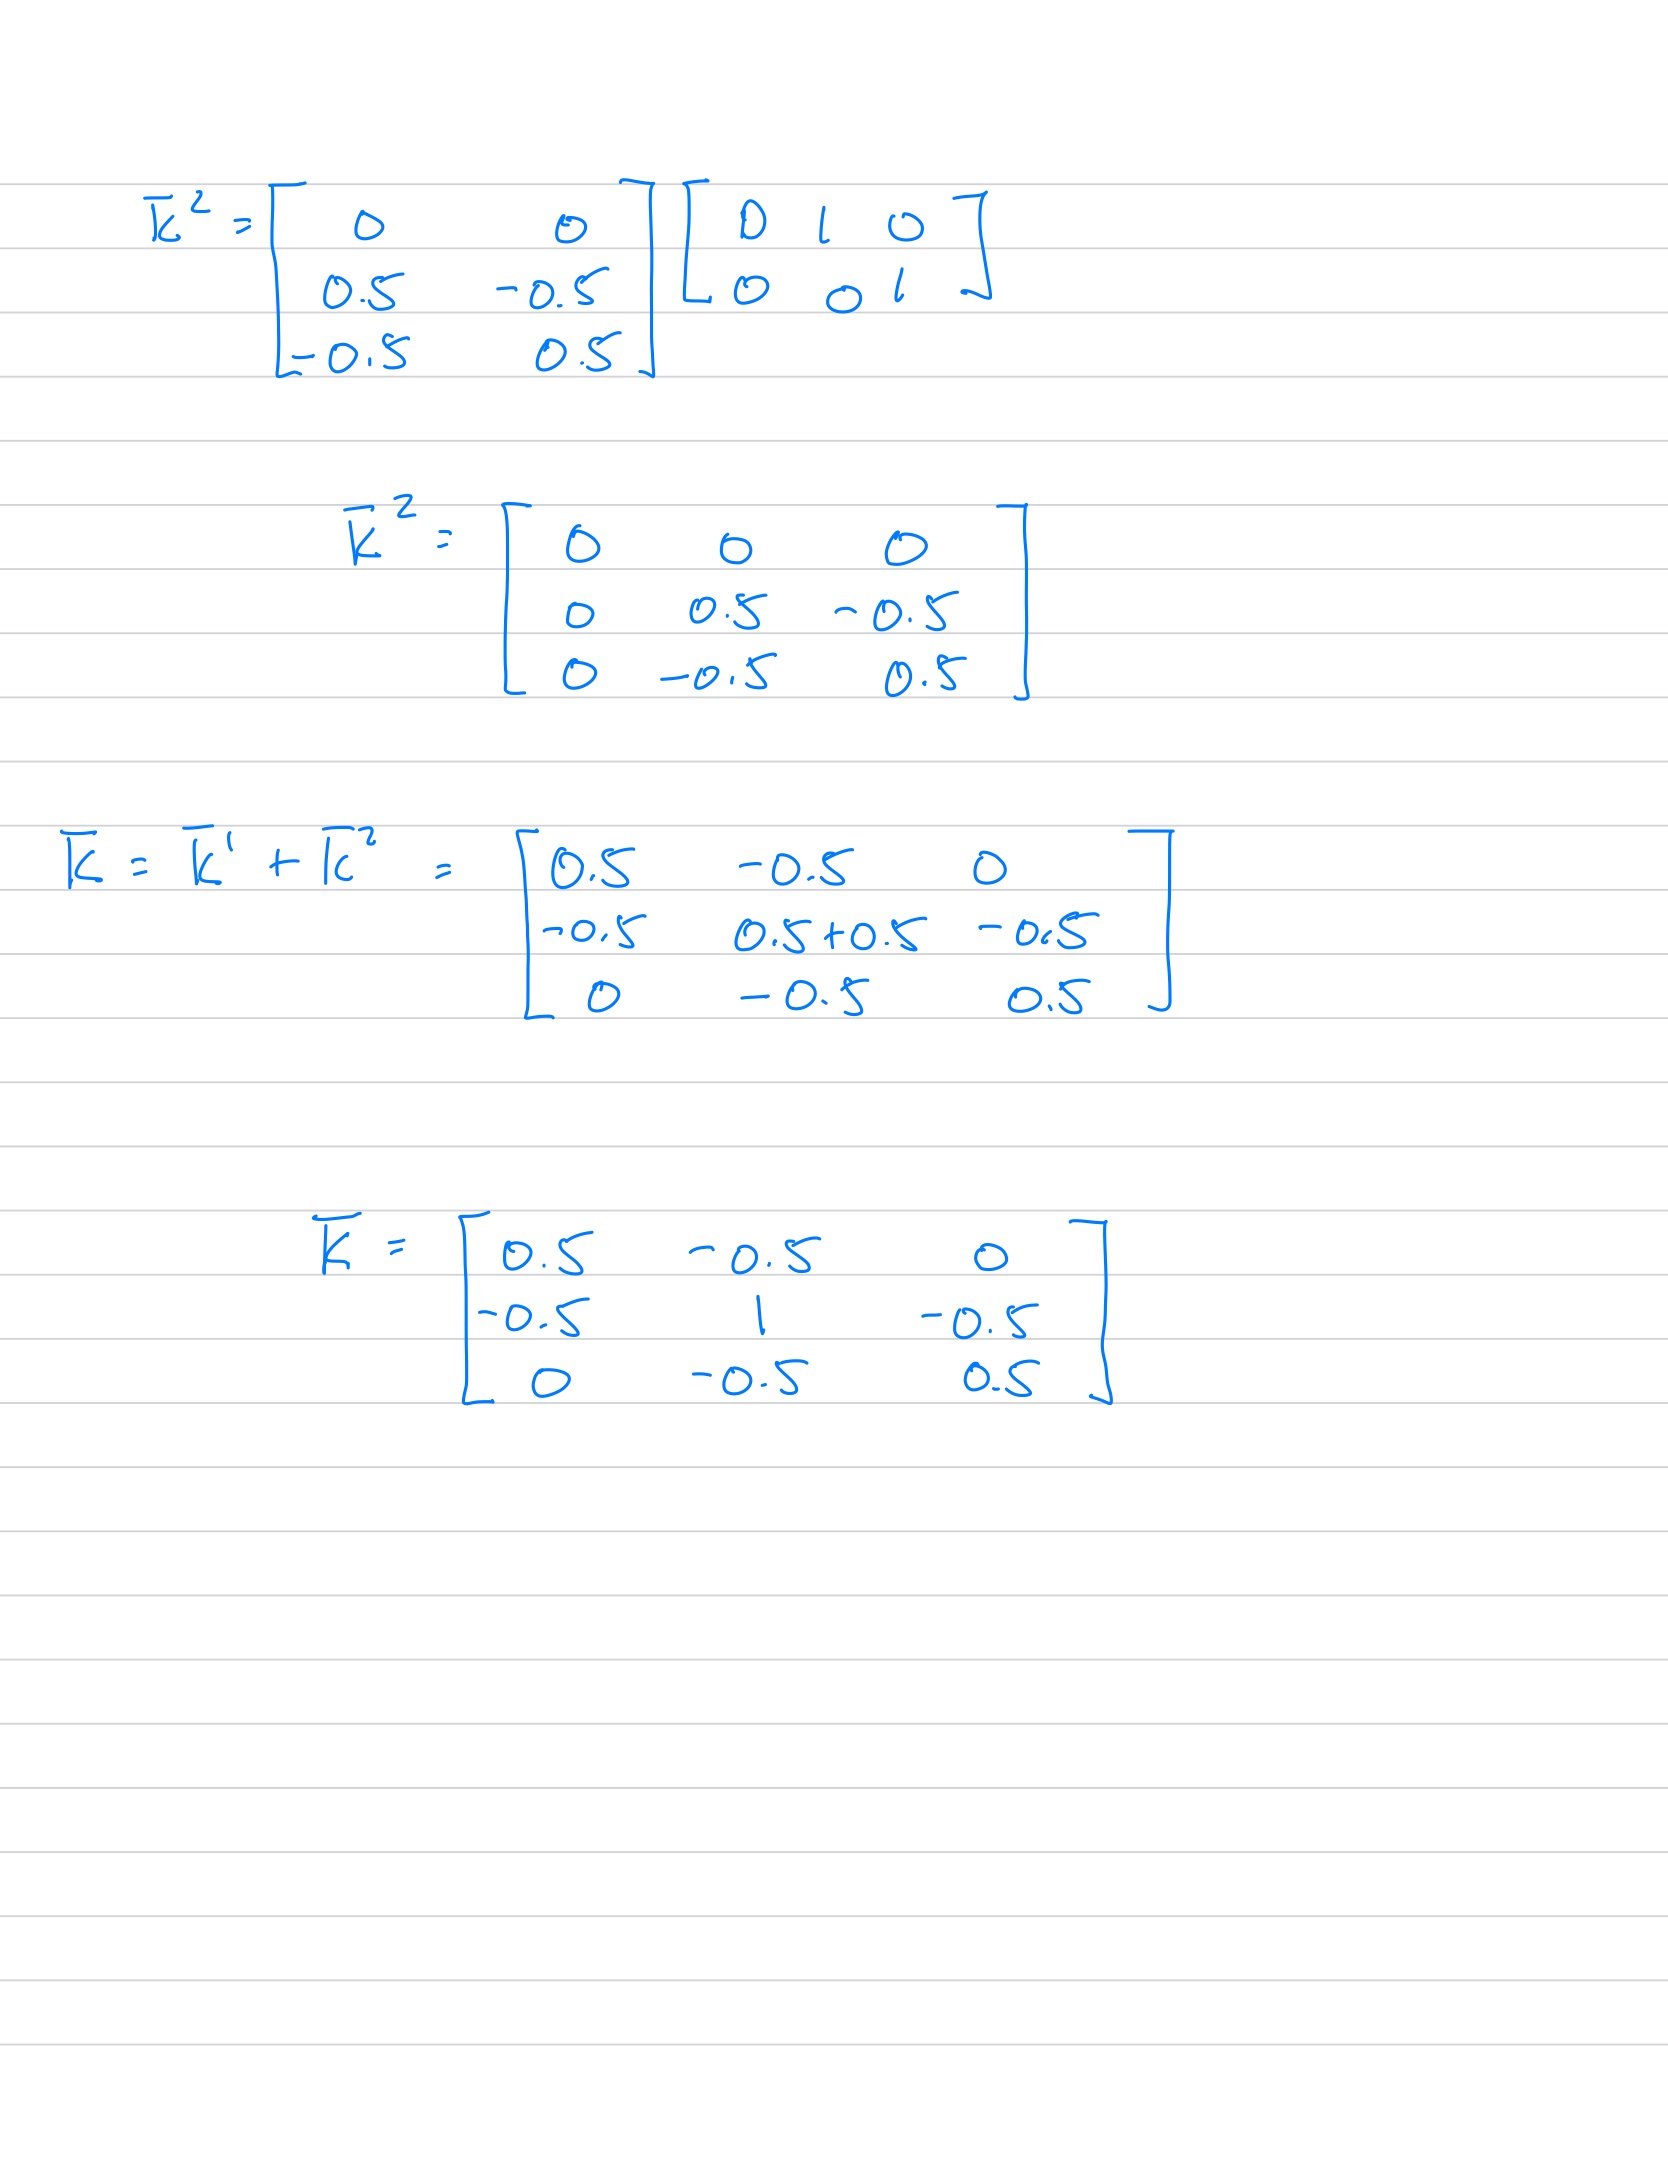 K̄² = [ 0 0 ] [ 0 1 0 ]
0.5 -0.5 0 0 1
-0.5 0.5
K̄² = [ 0 0 0 ]
0 0.5 -0.5
0 -0.5 0.5
K̄ = K̄¹ + K̄² = [ 0.5 -0.5 0 ]
-0.5 0.5+0.5 -0.5
0 -0.5 0.5
K̄ = [ 0.5 -0.5 0 ]
-0.5 1 -0.5
0 -0.5 0.5